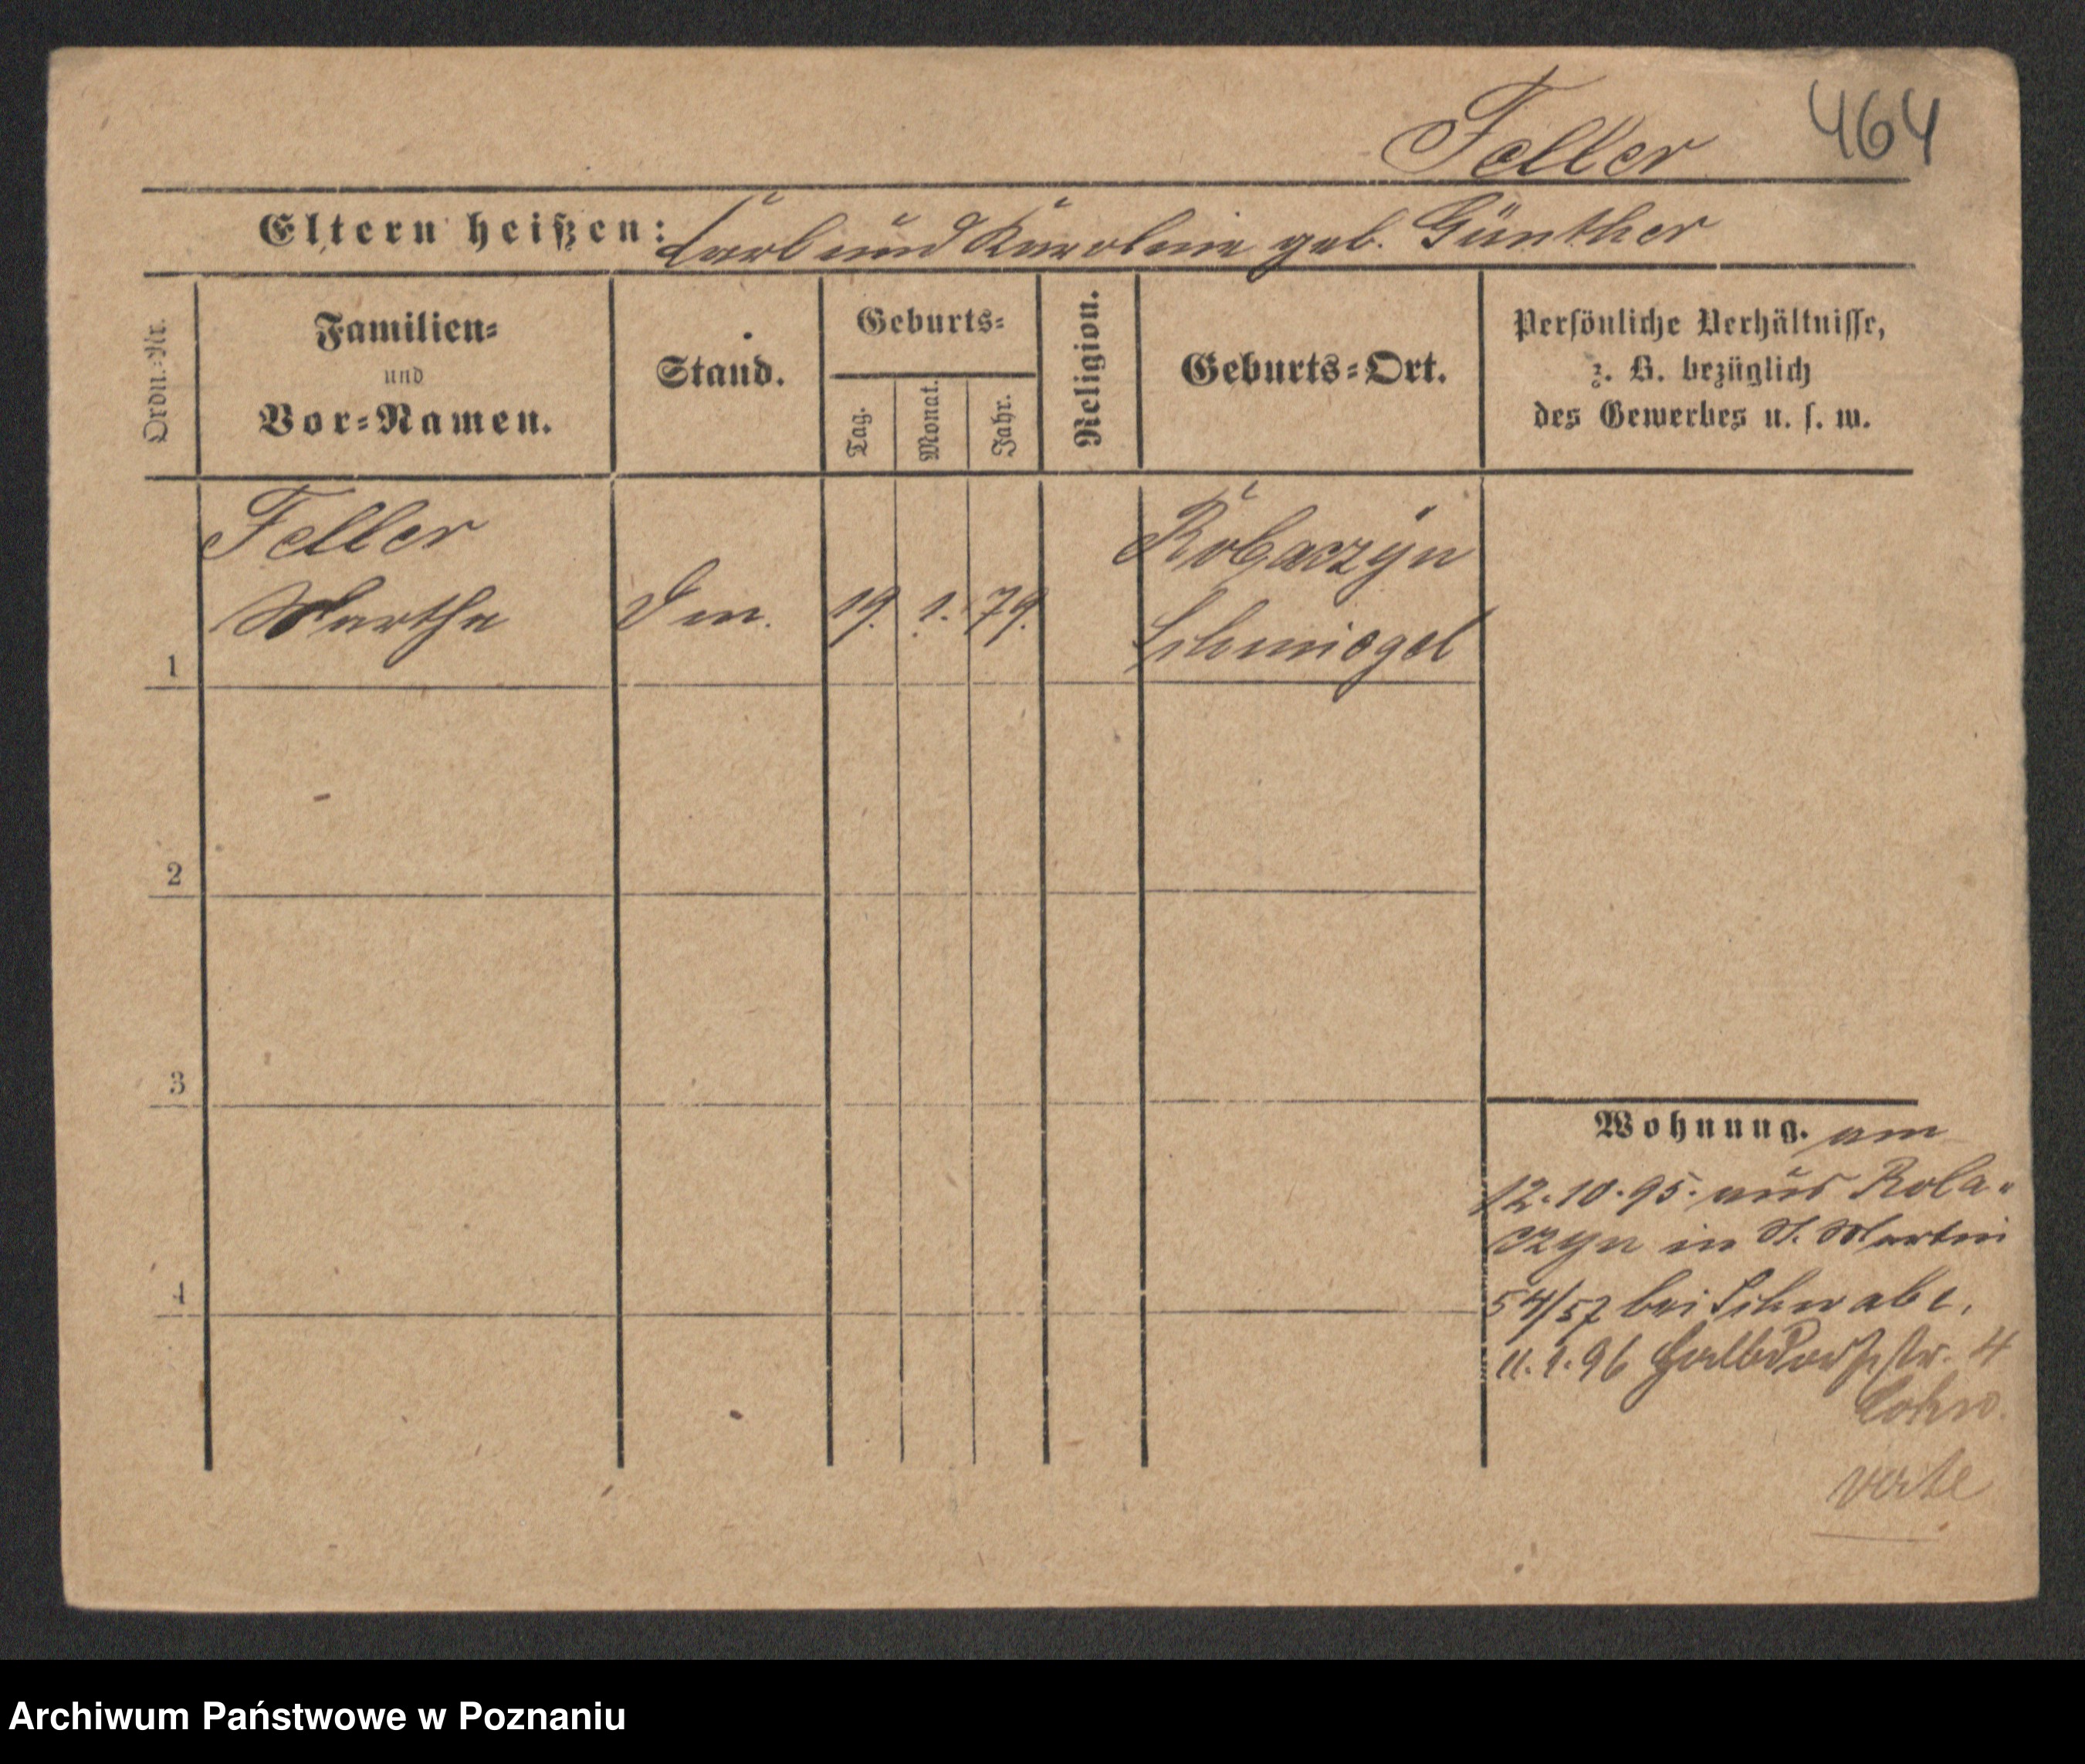 Feller 464
Eltern heißen: Carl und Karoline geb. Günther
Ordn.=Nr.
Familien=
und
Vor=Namen.
Stand.
Geburts=
Tag.
Monat.
Jahr.
Religion.
Geburts=Ort.
Persönliche Verhältnisse,
z. B. bezüglich
des Gewerbes u. s. w.
1
Feller
Martha
19. 1. 79.
Robaczyn
Schmiegel
2
3
4
Wohnung. am
12.10.95. aus Roba=
czyn in St. Martin
54/57 bei Schwabe.
11.1.96 Halbdorfstr. 4
verte
Archiwum Państwowe w Poznaniu